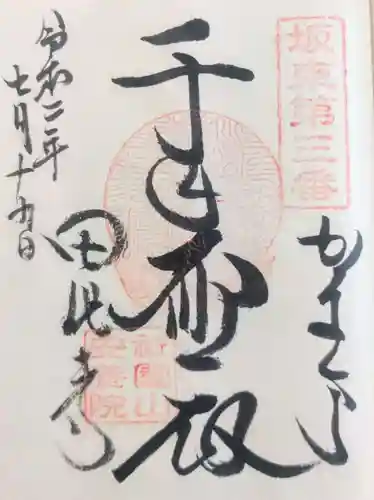 坂東第三番
かまくら
千手悲殿
祇園山
安養院
田代寺
令和二年
七月十五日